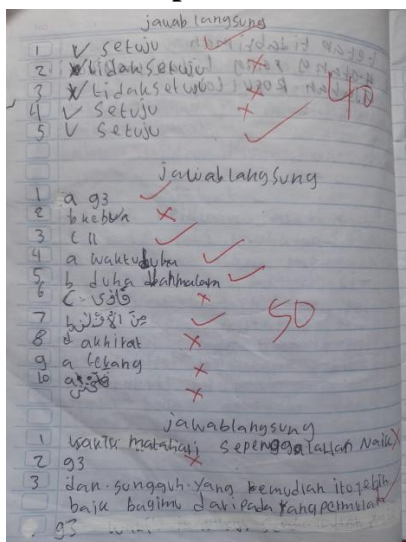 jawab langsung
1 V setuju
2 tidak setuju
3 tidak setuju
4 V setuju
5 V setuju
40
jawab langsung
1 a 93
2 b kebun
3 c 11
4 a waktu duha
5 b duha dan malam
6 c.
7 b مِنَ الْأُوْلٰى
8 d akhirat
9 a
10 a
50
jawab langsung
1 waktu matahari sepenggalahan naik
2 93
3 dan sungguh yang kemudian itu lebih
baik bagimu daripada yang permulaan
93